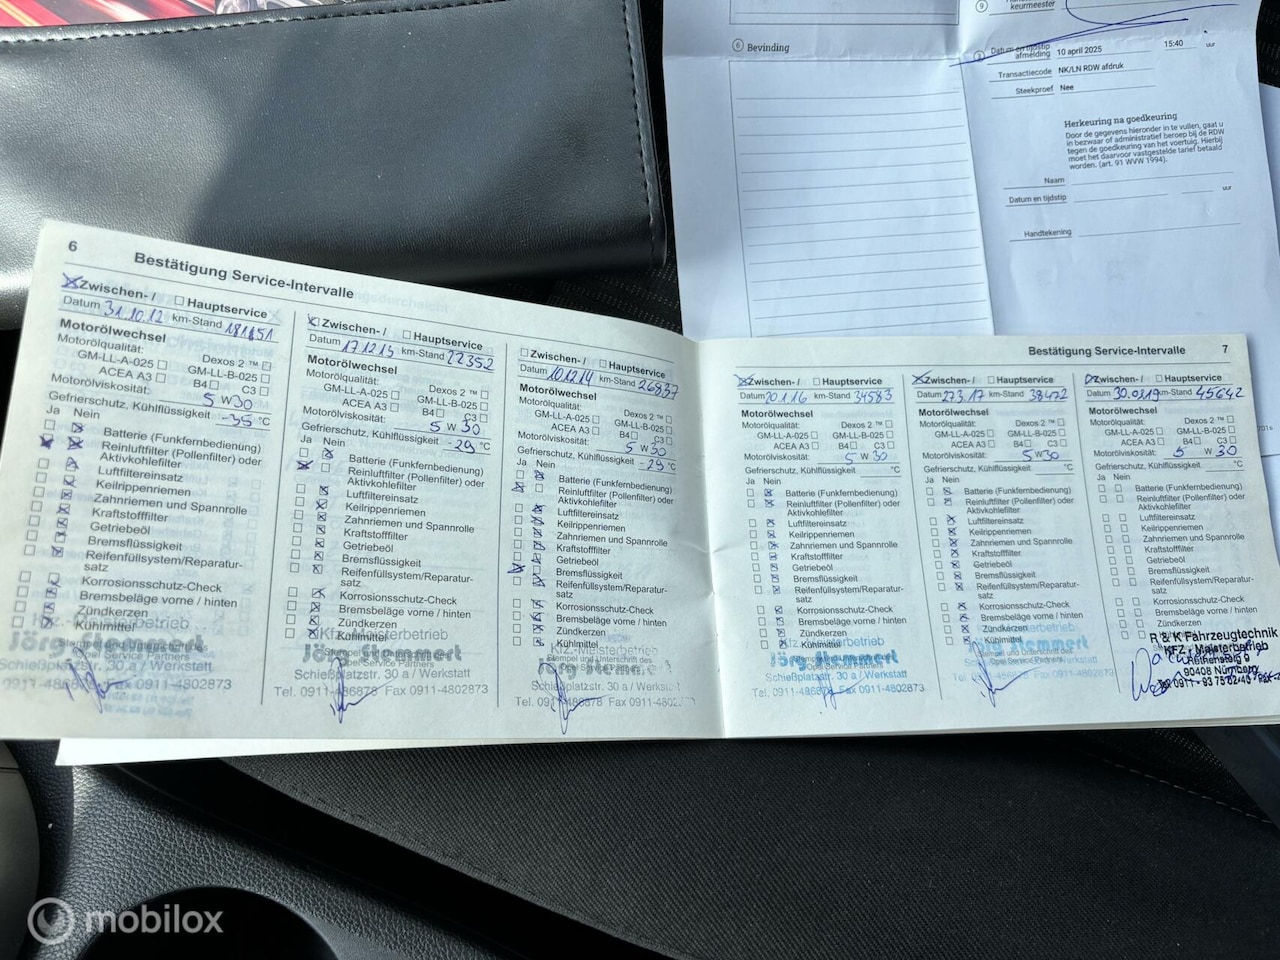 6 Bevinding
9
keurmeester
Datum en tijdstip
afmelding 10 april 2025 15:40 uur
Transactiecode NK/LN RDW afdruk
Steekproef Nee
Herkeuring na goedkeuring
Door de gegevens hieronder in te vullen, gaat u
in bezwaar of administratief beroep bij de RDW
tegen de goedkeuring van het voertuig. Hierbij
moet het daarvoor vastgestelde tarief betaald
worden. (art. 91 WVW 1994).
Naam
Datum en tijdstip uur
Handtekening
6 Bestätigung Service-Intervalle
Zwischen- / Hauptservice
Datum 31.10.12 km-Stand
Motorölwechsel
Motorölqualität: Dexos 2 ™
GM-LL-A-025 GM-LL-B-025
ACEA A3 B4 C3
Motorölviskosität: 5 W 30
Gefrierschutz, Kühlflüssigkeit -35 °C
Ja Nein
Batterie (Funkfernbedienung)
Reinluftfilter (Pollenfilter) oder
Aktivkohlefilter
Luftfiltereinsatz
Keilrippenriemen
Zahnriemen und Spannrolle
Kraftstofffilter
Getriebeöl
Bremsflüssigkeit
Reifenfüllsystem/Reparatur-
satz
Korrosionsschutz-Check
Bremsbeläge vorne / hinten
Zündkerzen
Kühlmittel
Kfz.-Meisterbetrieb
Jörg Stemmert
Schießplatzstr. 30 a / Werkstatt
Fax 0911-4802873
Zwischen- / Hauptservice
Datum 17.12.13 km-Stand 22352
Motorölwechsel
Motorölqualität: Dexos 2 ™
GM-LL-A-025 GM-LL-B-025
ACEA A3 B4 C3
Motorölviskosität: 5 W 30
Gefrierschutz, Kühlflüssigkeit -29 °C
Ja Nein
Batterie (Funkfernbedienung)
Reinluftfilter (Pollenfilter) oder
Aktivkohlefilter
Luftfiltereinsatz
Keilrippenriemen
Zahnriemen und Spannrolle
Kraftstofffilter
Getriebeöl
Bremsflüssigkeit
Reifenfüllsystem/Reparatur-
satz
Korrosionsschutz-Check
Bremsbeläge vorne / hinten
Zündkerzen
Kühlmittel
Kfz.-Meisterbetrieb
Jörg Stemmert
Opel Service Partners
Schießplatzstr. 30 a / Werkstatt
Tel. 0911-486878 Fax 0911-4802873
Zwischen- / Hauptservice
Datum 10.12.14 km-Stand 26837
Motorölwechsel
Motorölqualität: Dexos 2 ™
GM-LL-A-025 GM-LL-B-025
ACEA A3 B4 C3
Motorölviskosität: 5 W 30
Gefrierschutz, Kühlflüssigkeit -29 °C
Ja Nein
Batterie (Funkfernbedienung)
Reinluftfilter (Pollenfilter) oder
Aktivkohlefilter
Luftfiltereinsatz
Keilrippenriemen
Zahnriemen und Spannrolle
Kraftstofffilter
Getriebeöl
Bremsflüssigkeit
Reifenfüllsystem/Reparatur-
satz
Korrosionsschutz-Check
Bremsbeläge vorne / hinten
Zündkerzen
Kühlmittel
Kfz.-Meisterbetrieb
Stempel und Unterschrift des
Jörg Stemme
Schießplatzstr. 30 a / Werkst
Tel. 0911-486878 Fax 0911-4802
Bestätigung Service-Intervalle 7
Zwischen- / Hauptservice
Datum 20.1.16 km-Stand 34583
Motorölwechsel
Motorölqualität: Dexos 2 ™
GM-LL-A-025 GM-LL-B-025
ACEA A3 B4 C3
Motorölviskosität: 5 W 30
Gefrierschutz, Kühlflüssigkeit °C
Ja Nein
Batterie (Funkfernbedienung)
Reinluftfilter (Pollenfilter) oder
Aktivkohlefilter
Luftfiltereinsatz
Keilrippenriemen
Zahnriemen und Spannrolle
Kraftstofffilter
Getriebeöl
Bremsflüssigkeit
Reifenfüllsystem/Reparatur-
satz
Korrosionsschutz-Check
Bremsbeläge vorne / hinten
Zündkerzen
Kühlmittel
Kfz.-Meisterbetrieb
Jörg Stemmert
Schießplatzstr. 30 a / Werkstatt
Tel. 0911-486878 Fax 0911-4802873
Zwischen- / Hauptservice
Datum 22.3.17 km-Stand 38422
Motorölwechsel
Motorölqualität: Dexos 2 ™
GM-LL-A-025 GM-LL-B-025
ACEA A3 B4 C3
Motorölviskosität: 5 W 30
Gefrierschutz, Kühlflüssigkeit °C
Ja Nein
Batterie (Funkfernbedienung)
Reinluftfilter (Pollenfilter) oder
Aktivkohlefilter
Luftfiltereinsatz
Keilrippenriemen
Zahnriemen und Spannrolle
Kraftstofffilter
Getriebeöl
Bremsflüssigkeit
Reifenfüllsystem/Reparatur-
satz
Korrosionsschutz-Check
Bremsbeläge vorne / hinten
Zündkerzen
Kühlmittel
Stemmert
Opel Service Partners
Zwischen- / Hauptservice
Datum 30.01.19 km-Stand 45642
Motorölwechsel
Motorölqualität: Dexos 2 ™
GM-LL-A-025 GM-LL-B-025
ACEA A3 B4 C3
Motorölviskosität: 5 W 30
Gefrierschutz, Kühlflüssigkeit °C
Ja Nein
Batterie (Funkfernbedienung)
Reinluftfilter (Pollenfilter) oder
Aktivkohlefilter
Luftfiltereinsatz
Keilrippenriemen
Zahnriemen und Spannrolle
Kraftstofffilter
Getriebeöl
Bremsflüssigkeit
Reifenfüllsystem/Reparatur-
satz
Korrosionsschutz-Check
Bremsbeläge vorne / hinten
Zündkerzen
Kühlmittel
R & K Fahrzeugtechnik
KFZ - Meisterbetrieb
90408 Nürnberg
mobilox